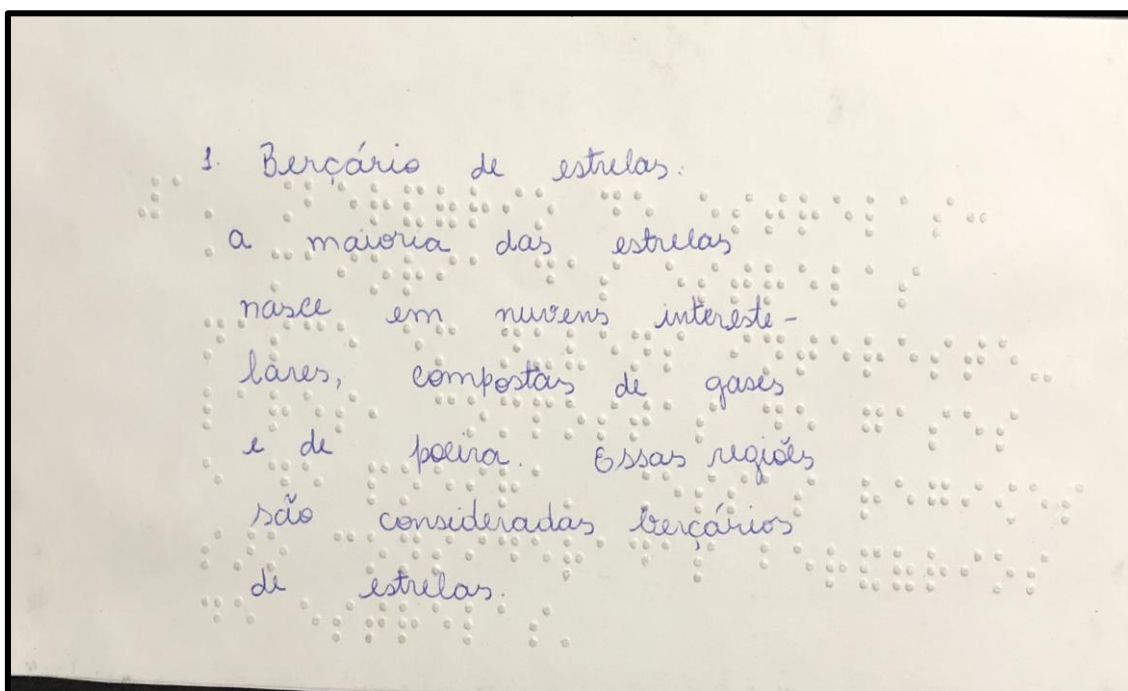 1. Berçário de estrelas.
a maioria das estrelas
nasce em nuvens intereste-
lares, compostas de gases
e de poeira. Essas regiões
são consideradas berçários
de estrelas.